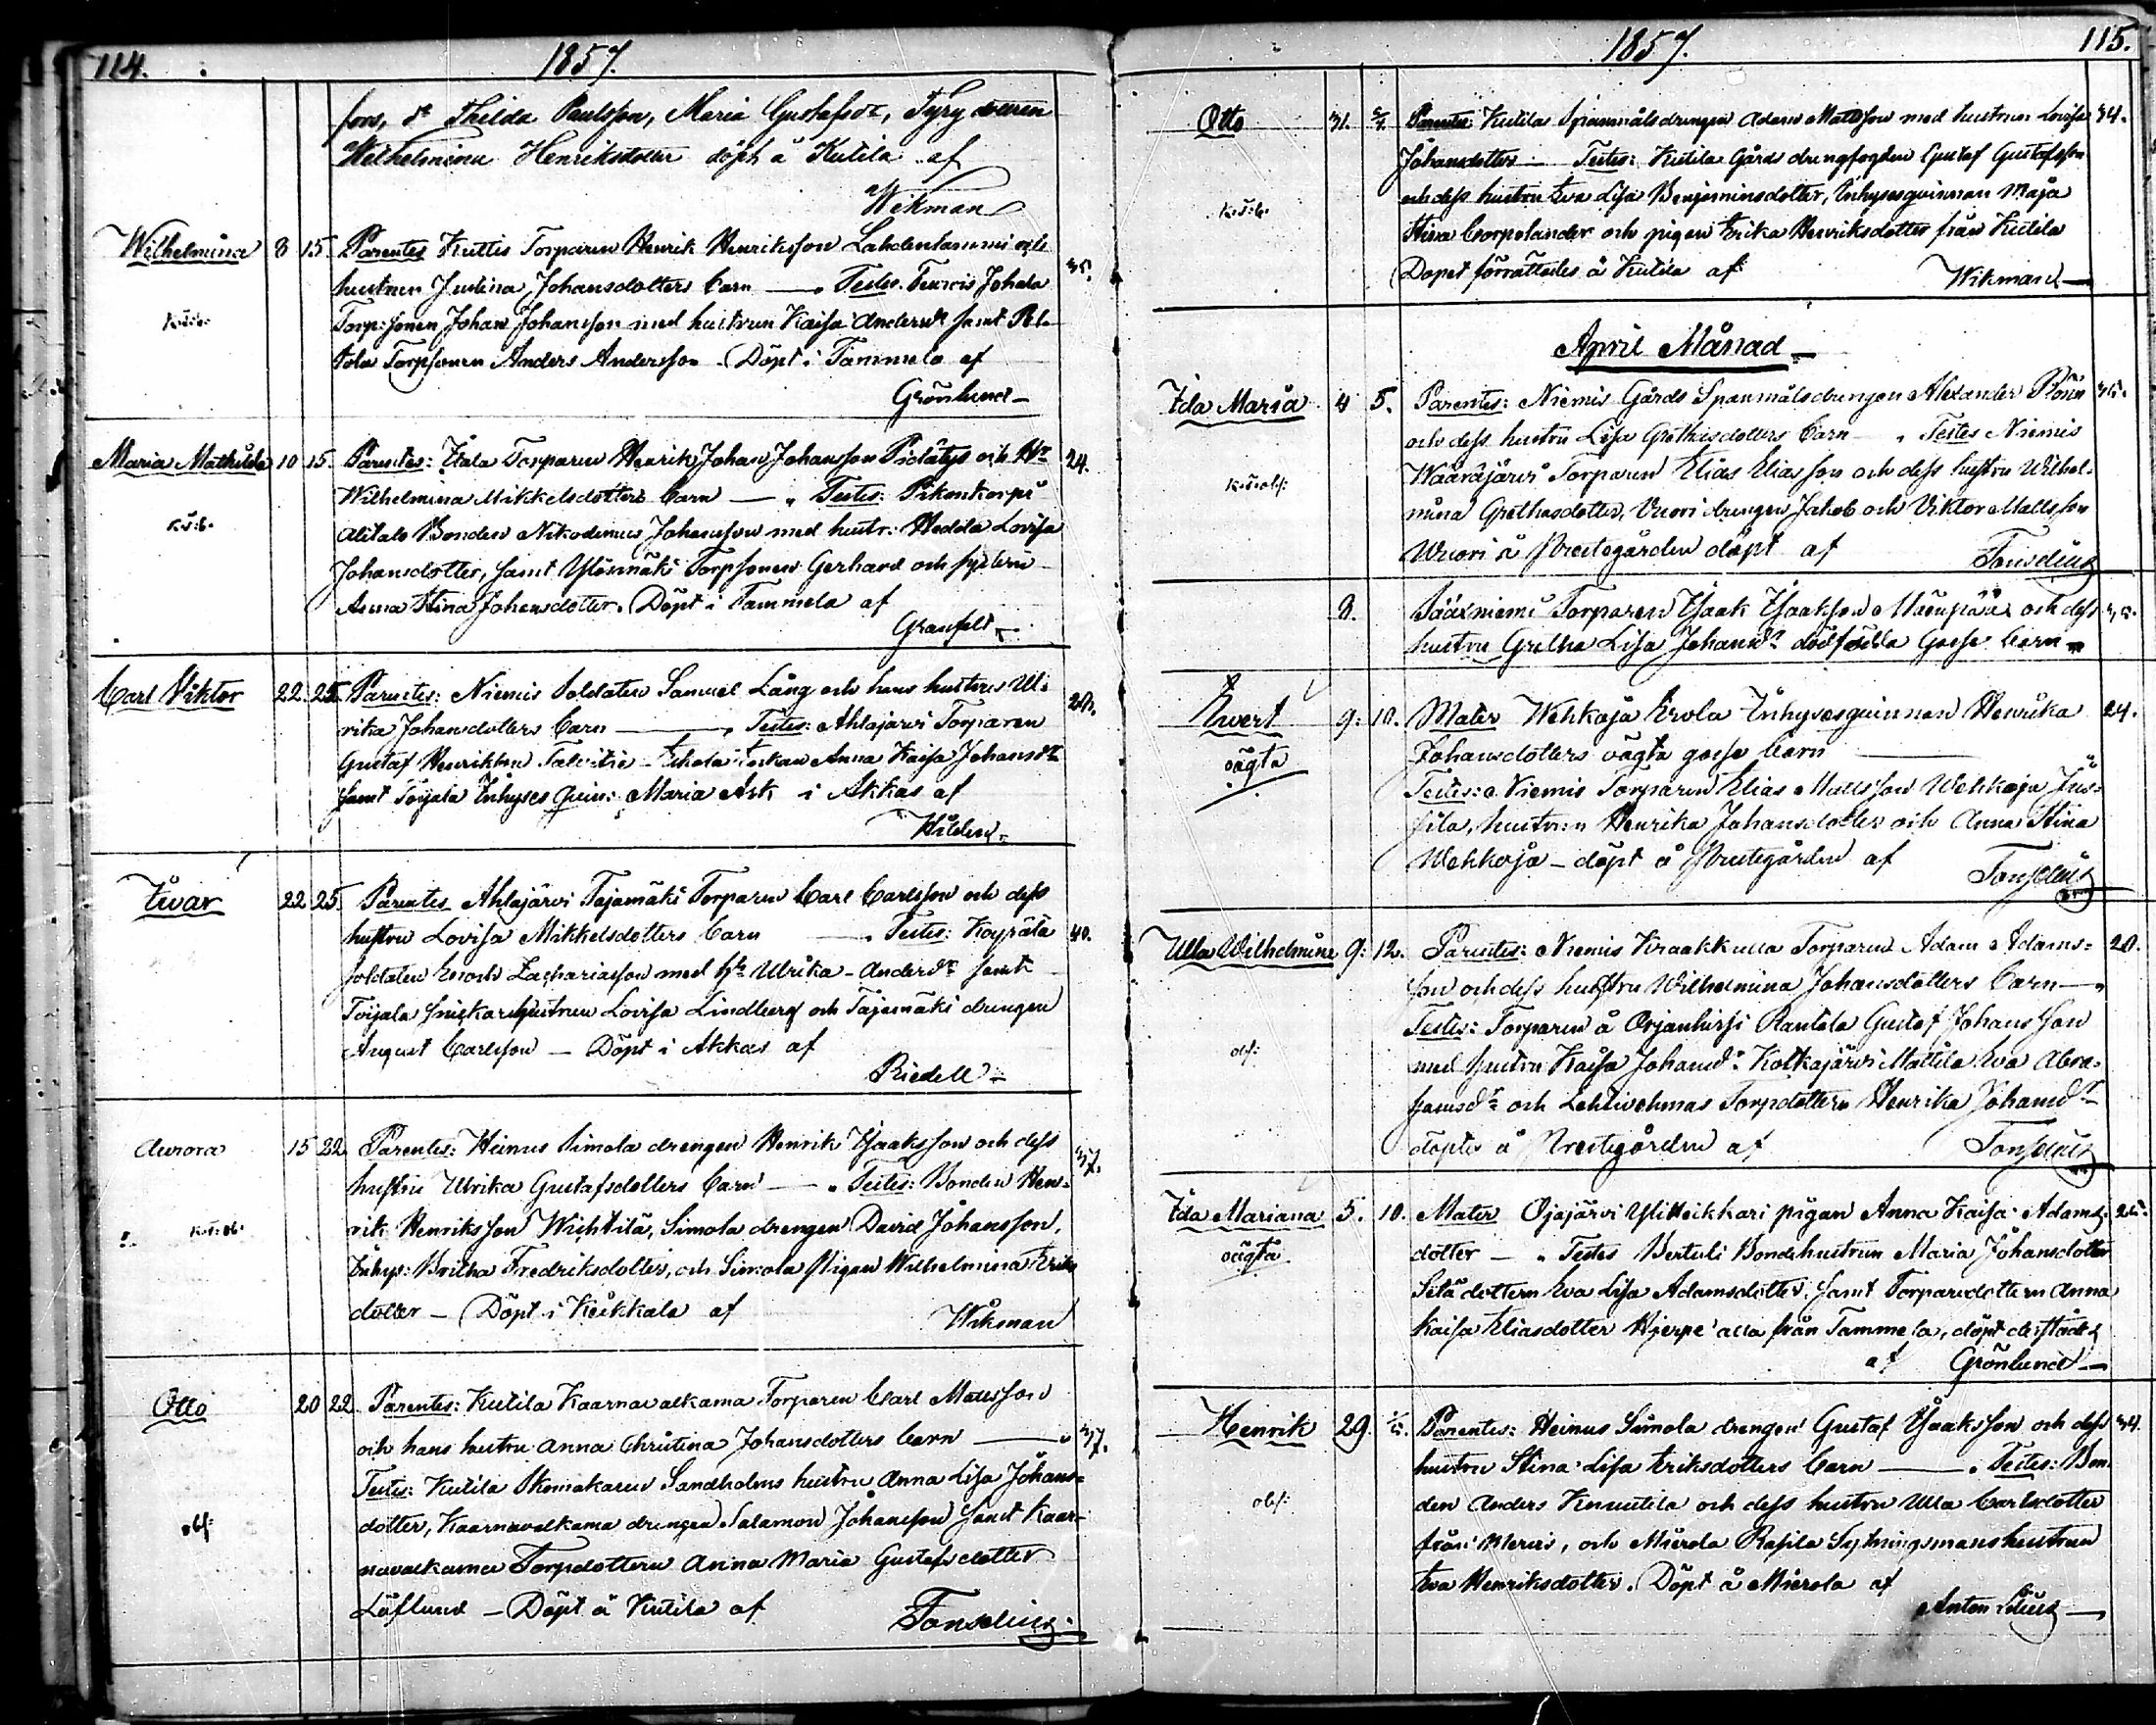 114. 1857.
fors, dr Thilda Paulsson, Maria Gustafsdr,
Wilhelmina Henriksdotter döpt å Kutila af
Wikman
Wilhelmina 8 15. Parentes Kuttis Torparen Henrik Henriksson Lahdentammi och 35.
hustrun Justina Johansdotters barn — Testes. Johala
Torp: sonen Johan Johansson med hustrun Kaisa Andersdr samt Pel-
tola Torpsonen Anders Andersson. Döpt i Tammela af
Grönlund
Maria Mathilda 10 15. Parentes: Torparen Henrik Johan Johansson och Hu 24.
Wilhelmina Mikkelsdotters barn — Testes:
Alitalo Bonden Nikodemus Johansson med hustr: Hedda Lovisa
Johansdotter, samt Ylösmäki Torpsonen Gerhard och systern
Anna Stina Johansdotter. Döpt i Tammela af
Granfelt
Carl Viktor 22. 25. Parentes: Niemis Soldaten Samuel Lång och hans hustrus Ul-
rika Johansdotters barn — Testes: Ahlajärvi Torparen
Gustaf Henriksson Anna Kaisa Johansdr
samt Toijala Inhyses Quin: Maria Ask i Akkas af
Wilén
Ivar 22 25. Parentes Ahlajärvi Tajamäki Torparen Carl Carlsson och dess
hustru Lovisa Mikkelsdotters barn — Testes: Koyrälä 40.
soldaten Enoch Zachariasson med h. Ulrika Andersdr samt
Toijala snickarehustrun Lovisa Lindberg och Tajamäki drengen
August Carlsson — Döpt i Akkas af
Riedell
Aurora 15 22 Parentes: Heinus Simola drengen Henrik Isaksson och dess 37.
hustru Ulrika Gustafsdotters barn — Testes: Bonden Hen-
rik Henriksson Wichtilä, Simola drengen David Johansson,
Inhys: Britha Fredriksdotter, och Simola Pigan Wilhelmina Eriks
dotter — Döpt i Keikkala af
Wikman
Otto 20 22 Parentes: Kutila Kaarnavalkama Torparen Carl Mattsson
och hans hustru Anna Christina Johansdotters barn — 37.
obf: Testes: Kutila Skomakaren Sandholms hustru Anna Lisa Johans-
dotter, Kaarnavalkama drengen Salamon Johansson samt Kaar-
navalkama Torpdottern Anna Maria Gustafsdotter
Löflund — Döpt å Kutila af
Tonselius
1857. 115.
Otto 31. Parentes Kutila Spanmålsdrengen Adam Mattsson med hustrun Lovisa 34.
Johansdotter — Testes: Kutila Gårds drengfogden Gustaf Gustafsson
och dess hustru Eva Lisa Benjaminsdotter, Inhysesquinnan Maja
Stina Corpolander och pigan Erika Henriksdotter från Kutila
Dopet förrättades å Kutila af Wikman
April Månad
Ida Maria 4 5. Parentes: Niemis Gårds Spanmålsdrengen Alexander
och dess hustru Lisa Grethasdotters barn — Testes Niemis
Wääräjärvi Torparen Elias Eliasson och dess hustru Wilhel-
mina Grethasdotter, Vuori drengen Jakob och Viktor Mattsson
Wuori å Prestegården döpt af Tonselius
8. Sääxniemi Torparen Isaak Isaaksson Mäenpää och dess
hustru Gretha Lisa Johansdr dödfödda Gosse barn
Evert 9. 10. Mater Wehkoja Erola Inhysesquinnan Henrika 24.
oägta Johansdotters oägta gosse barn
Testes: Niemis Torparen Elias Mattsson Wehkoja Jus-
sila, hustrun Henrika Johansdotter och Anna Stina
Wehkoja — döpt å Prestegården af Tonselius
Ulla Wilhelmina 9. 12. Parentes: Niemis Kraakkulla Torparen Adam Adams- 20.
son och dess hustru Wilhelmina Johansdotters barn —
obf: Testes: Torparen å Orjanhirsi Rantala Gustaf Johansson
med hustru Kaisa Johansdr Kolkajärvi Mattila Eva Abra-
hamsdr och Lehtivehmas Torpdottern Henrika Johansdr
döptes å Prestegården af Tonselius
Ida Mariana 5. 10. Mater Ojajärvi Yliheikkari pigan Anna Kaisa Adams-
oägta dotter — Testes Bertuli Bondehustrun Maria Johansdotter
Setä dottern Eva Lisa Adamsdotter, samt Torparedottern Anna
Kaisa Eliasdotter Hjerpe alla från Tammela, döpt derstädes
af Grönlund
Henrik 29 Parentes: Heinus Simola drengen Gustaf Isaaksson och dess 34.
hustru Stina Lisa Eriksdotters barn — Testes: Bon-
obf: den Anders Knuutila och dess hustru Ulla Carlsdotter
från Mervis, och Mierola Rapila Sytningsmanshustrun
Eva Henriksdotter. Döpt å Mierola af
Anton Lilius